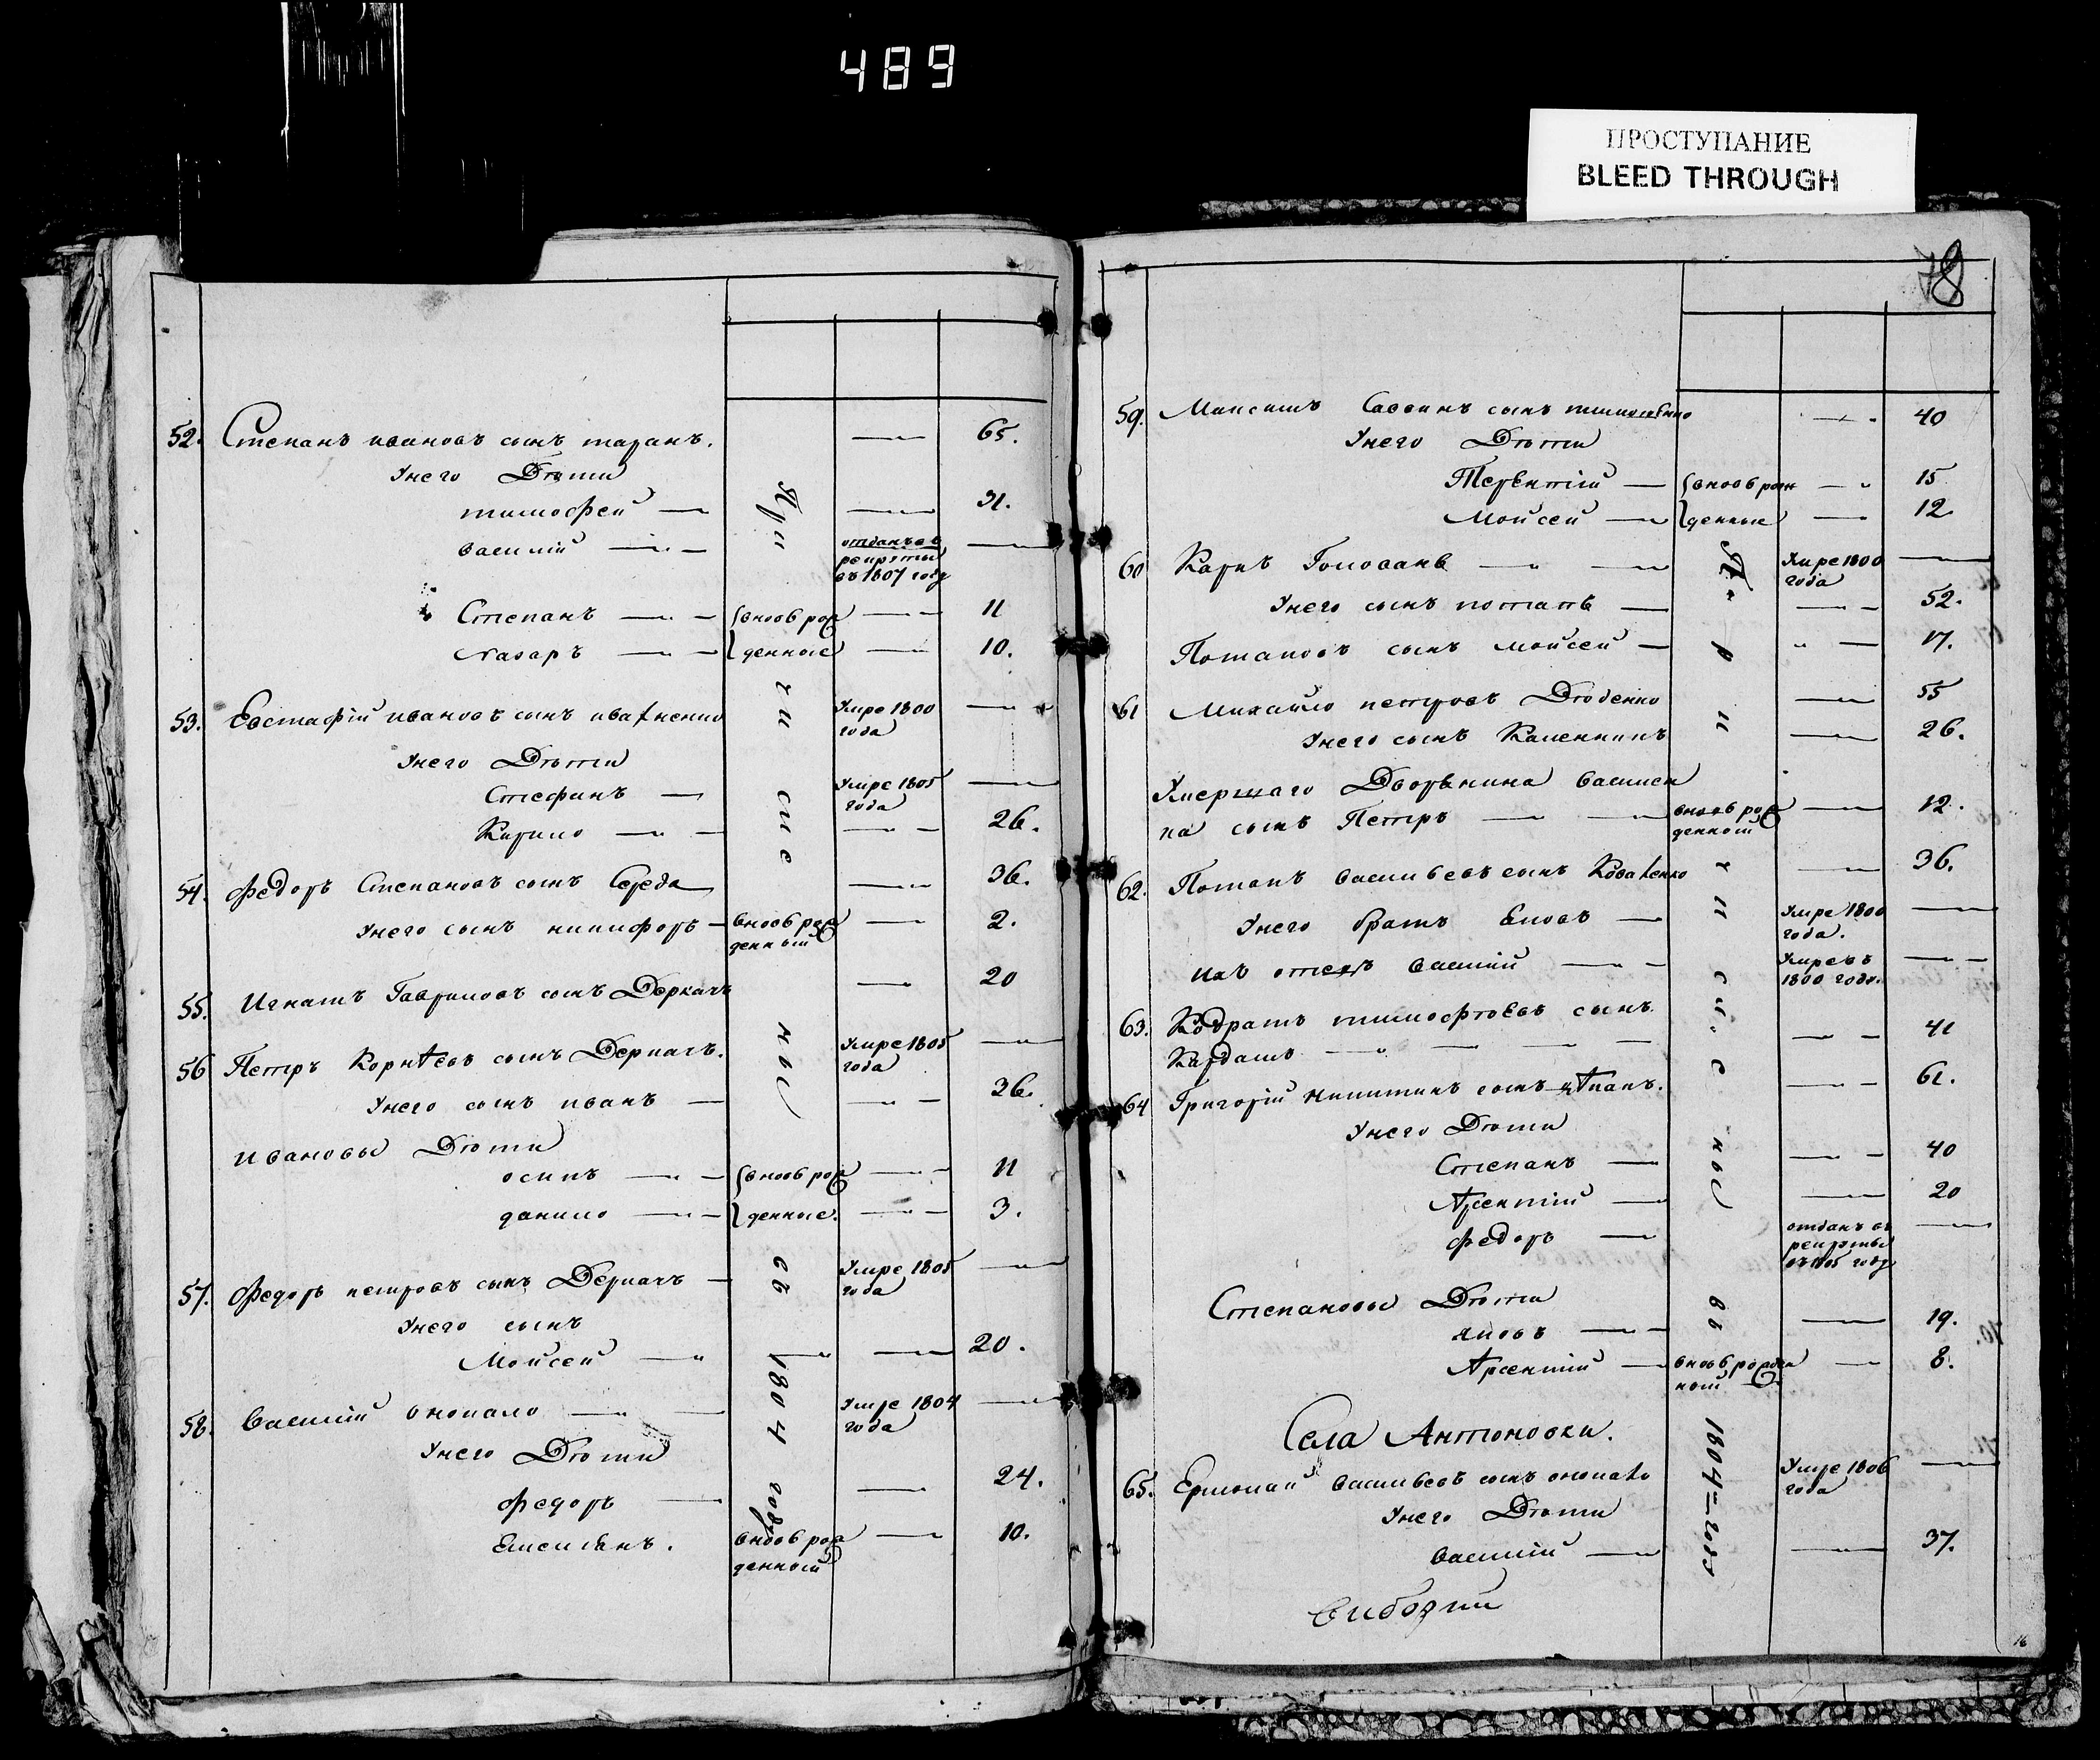 489
ПРОСТУПАНИЕ
BLEED THROUGH
78
52. Степанъ ивановъ сынъ таранъ. — 65.
Унего Дѣти
тимофей — — 31.
василий — отданъ въ рекруты въ 1807 году —
Степанъ — вновь рож — 11
назаръ — денные — 10.
53. Евстафій ивановъ сынъ ивахненко Умре 1800 года —
Унего Дѣти
Стефанъ — Умре 1805 года —
Кирило — — 26.
54. Федоръ Степановъ сынъ Середа — 36.
Унего сынъ никифоръ — вновь рож денный — 2.
55. Игнатъ Гавриловъ сынъ Деркачъ — 20
56 Петръ Корнѣевъ сынъ Деркачъ. Умре 1805 года —
Унего сынъ иванъ — — 36.
ивановы Дѣти
осипъ — вновь рож — 11
данило — денные. — 3.
57. Федоръ петровъ сынъ Деркачъ — Умре 1805 года —
Унего сынъ
Мойсей — — 20.
58. Василий оконало — Умре 1804 года —
Унего Дѣти
федоръ — — 24.
Емельянъ. вновь рож денный — 10.
При числены въ 1804 году
59. Максимъ Саввинъ сынъ — 40
Унего Дѣти
Терентій — вновь рож — 15
Мойсей — денные — 12
60 Карпъ Головань — Умре 1800 года —
Унего сынъ потапъ — — 52.
Потаповъ сынъ мойсей — — 17.
61 Михайло петровъ Дроденко — 55
Унего сынъ Каленникъ — 26.
Умершаго Дворянина васильев
на сынъ Петръ — вновь рож денной — 12.
62. Потапъ васильевъ сынъ Коваленко — 36.
Унего братъ Яковъ — Умре 1800 года. —
ихъ отецъ василий — Умре въ 1800 году. —
63. Кодратъ тимофѣевъ сынъ
Кардашъ — — 41
64 Григорій никитинъ сынъ — 61.
Унего Дѣти
Степанъ — — 40
Арсентій — — 20
федоръ — отданъ въ рекруты въ 1805 году —
Степановы Дѣти
яковъ — — 19.
Арсентий — вновь рожден ной — 8.
Села Антоновки.
65. Ермолай васильевъ сынъ оконало Умре 1806 года —
Унего Дѣти
василий — — 37.
При числены въ 1804 = году
16